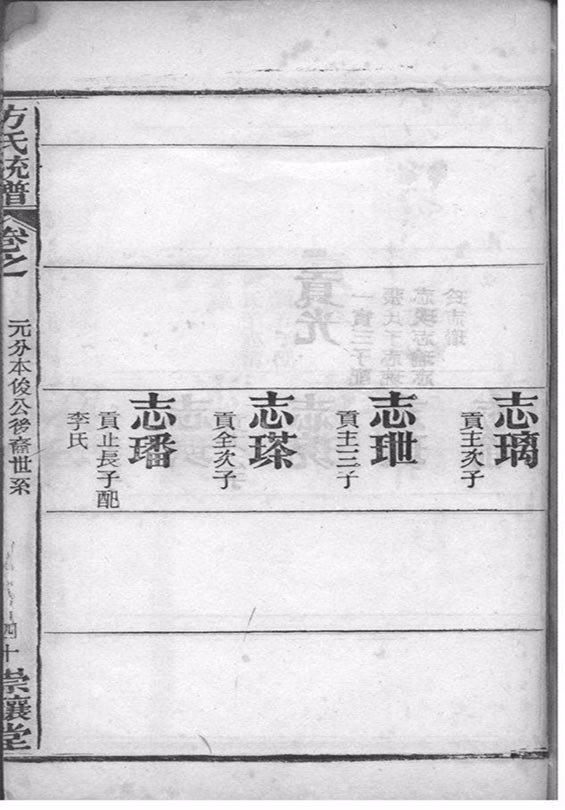 志璃
貢主次子
志玴
貢主三子
志𤦛
貢全次子
志璠
貢止長子配
李氏
方氏統譜
卷之一
元分本俊公後裔世系
四十
崇讓堂